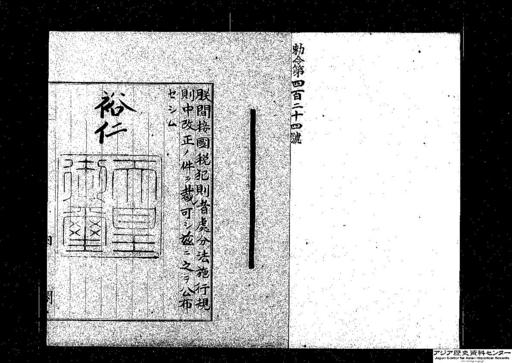 勅令第四百二十四號
朕間接國税犯則者處分法施行規
則中改正ノ件ヲ裁可シ茲ニ之ヲ公布
セシム
裕仁
天皇
御璽
内
閣
アジア歴史資料センター
Japan Center for Asian Historical Records